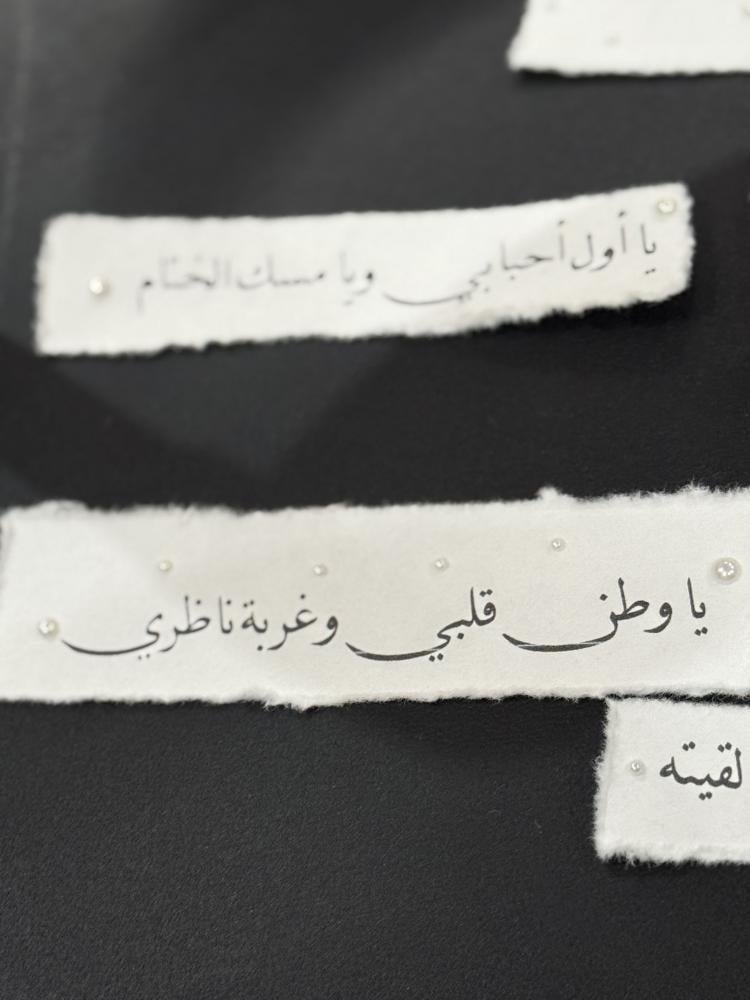 يا أول أحبابي ويا مسك الختام
يا وطن قلبي وغربة ناظري
لقيته